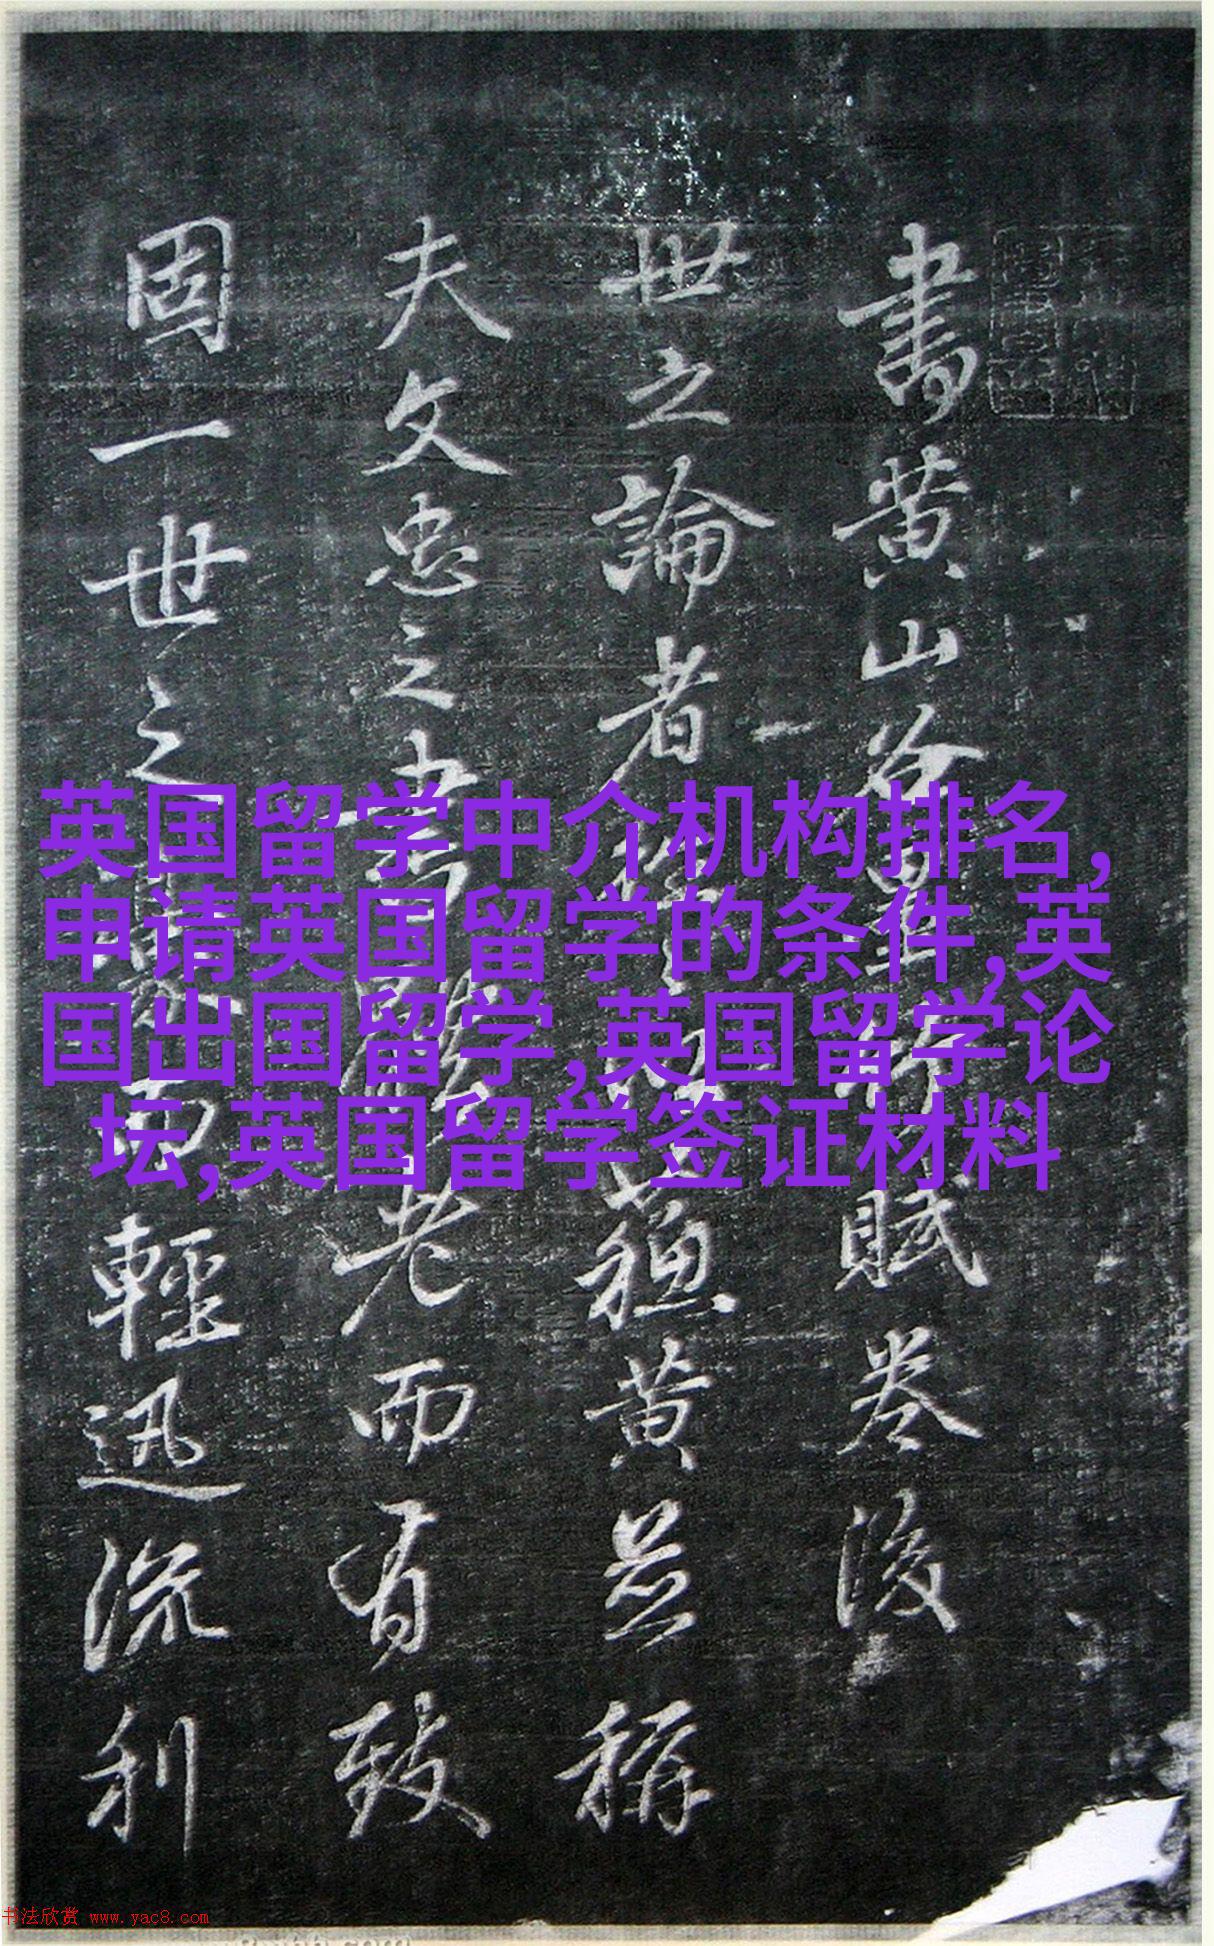 書黄山谷賦卷後
世之論者蘓黄並稱
夫文忠之書老而有致
固一世之而輕迅流利
英国留学中介机构排名,
申请英国留学的条件,英
国出国留学,英国留学论
坛,英国留学签证材料
书法欣赏 www.yac8.com